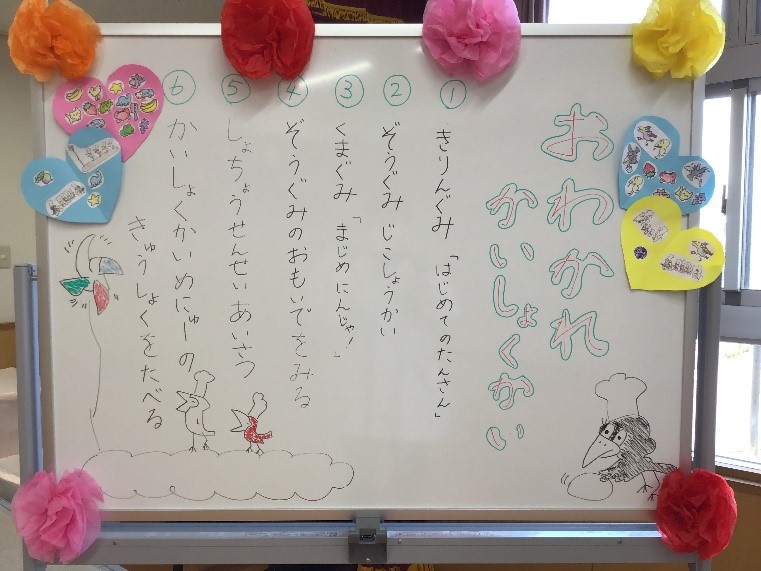 おわかれ
かいしょくかい
① きりんぐみ 「はじめてのたんさん」
② ぞうぐみ じこしょうかい
③ くまぐみ 「まじめにんじゃ!」
④ ぞうぐみのおもいでをみる
⑤ しょちょうせんせいあいさつ
⑥ かいしょくかいめにゅーの
きゅうしょくをたべる